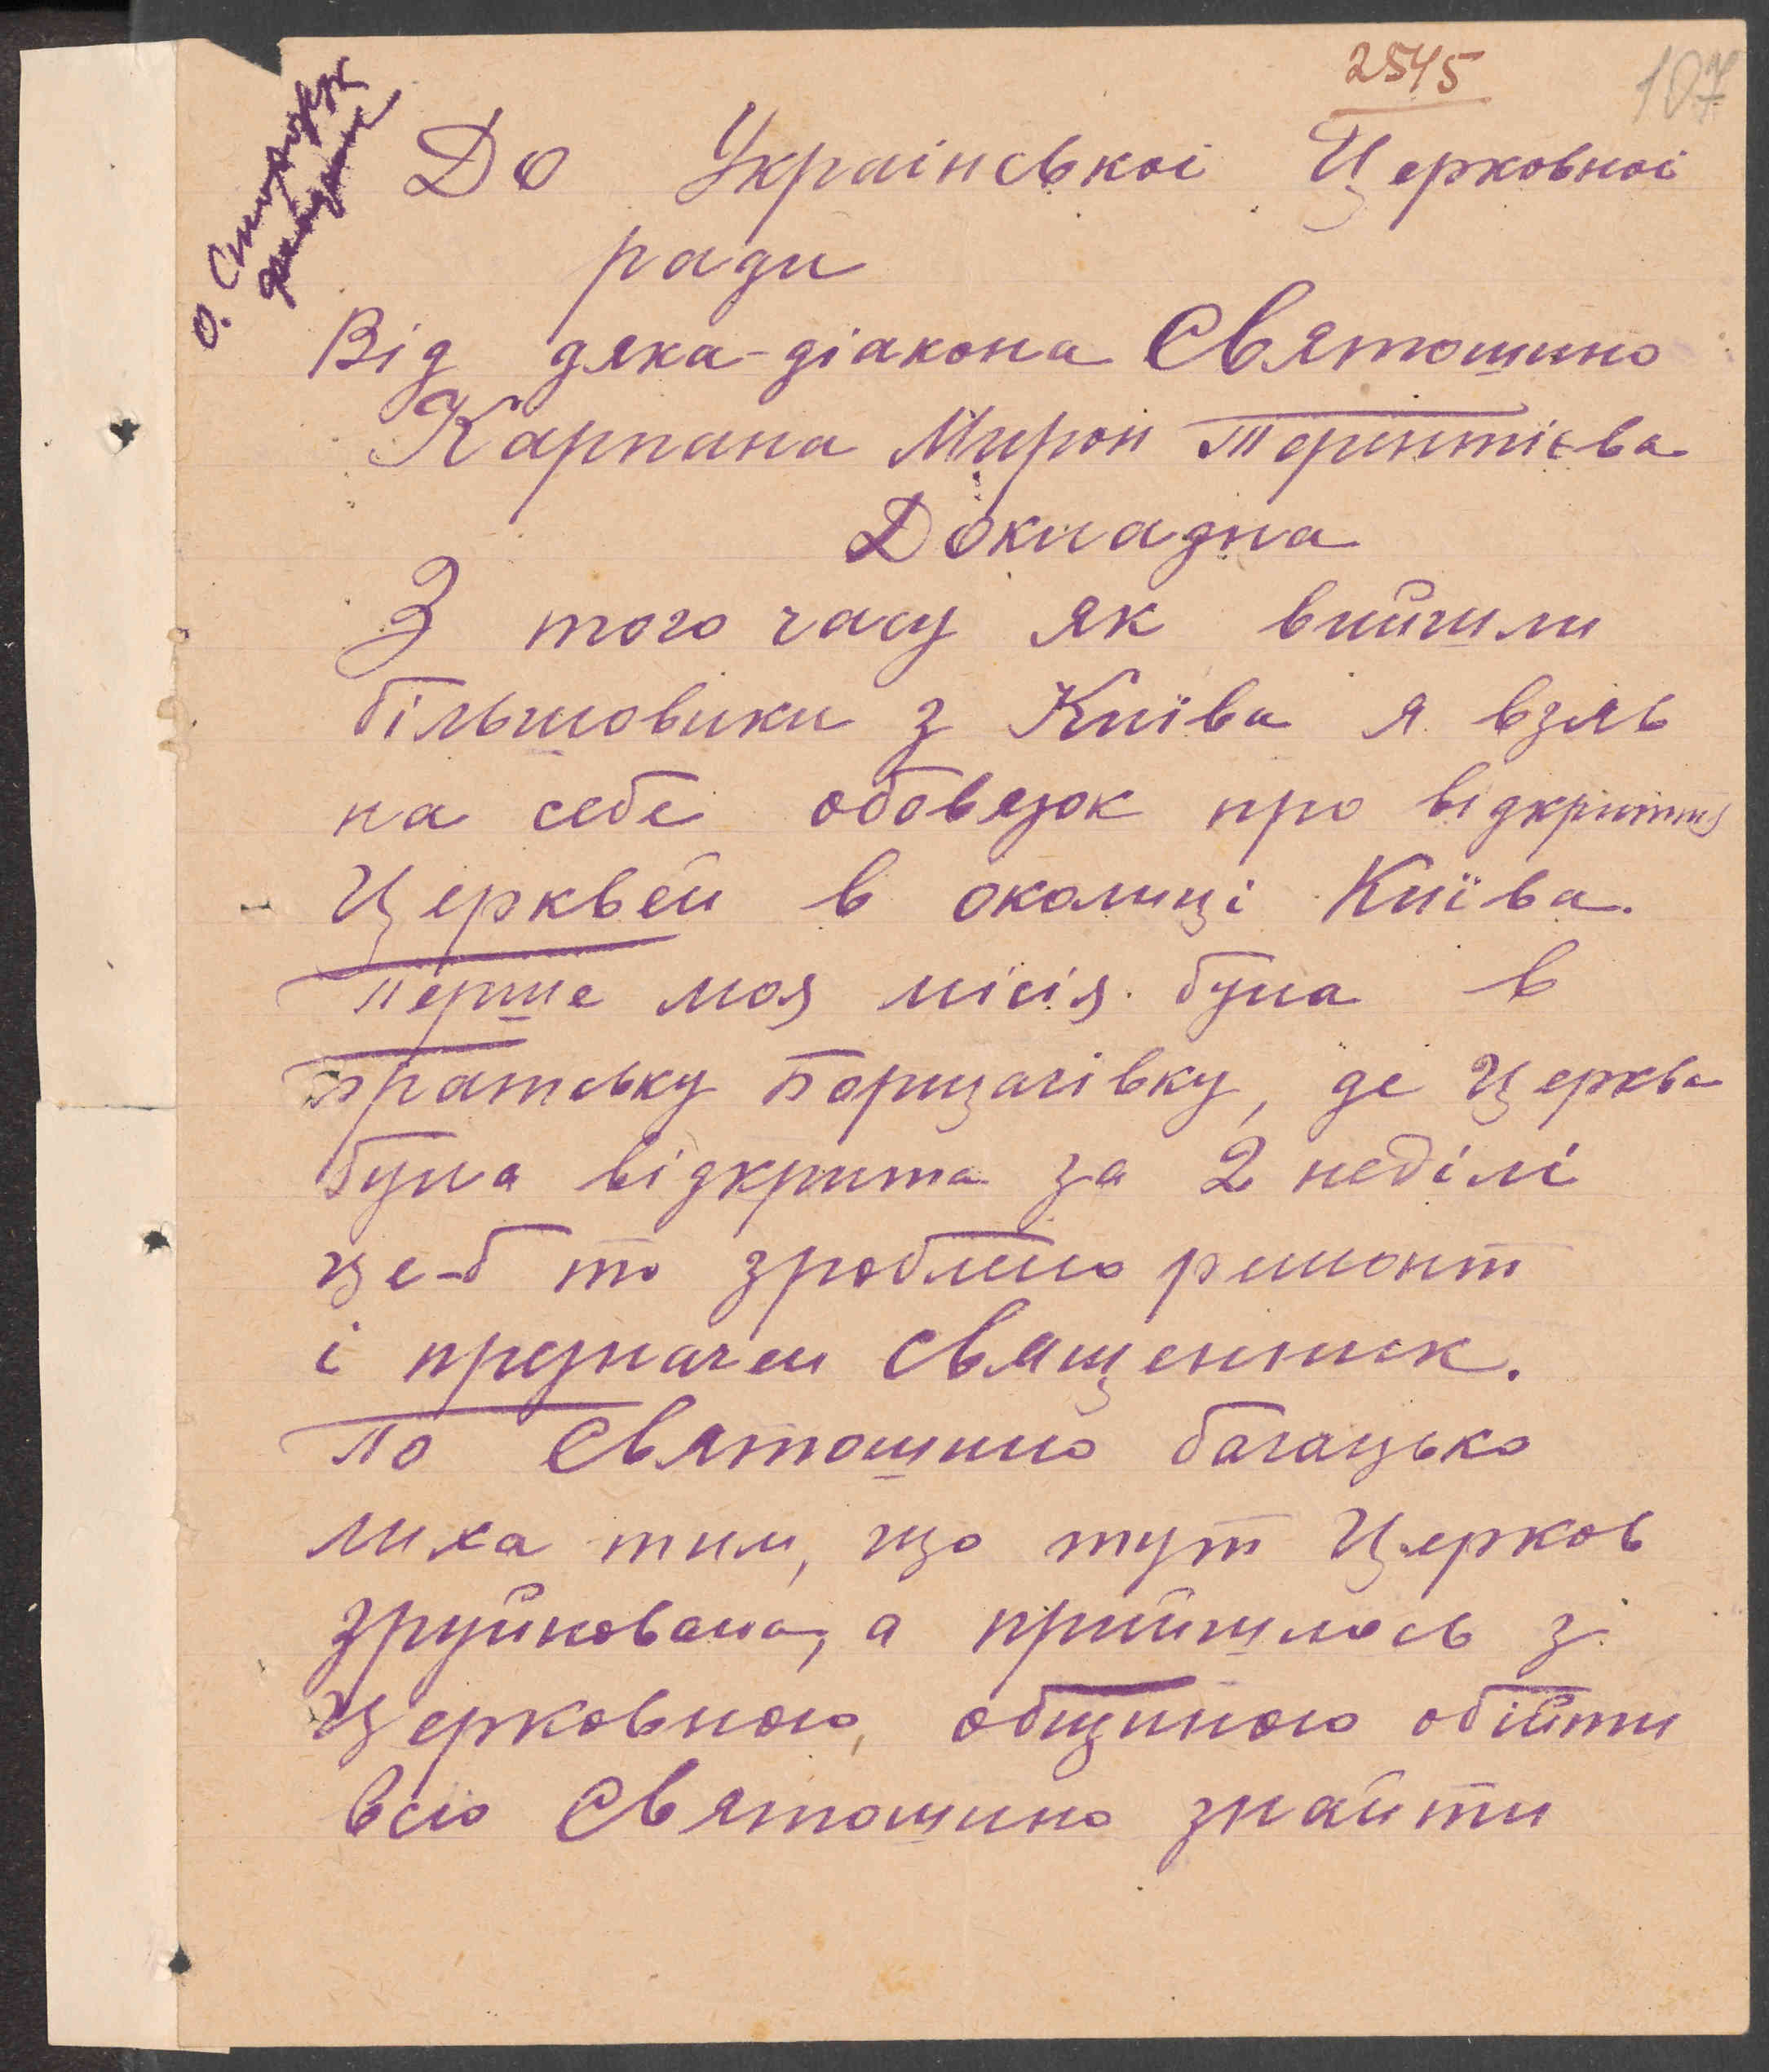 2545
107
До Украінськоі Церковноі
ради
Від дяка-діакона Святошино
Карпана Мирон Терентієва
Докладна
З того часу як вийшли
більшовики з Київа я взяв
на себе обовязок про відкриття
Церквей в околиці Київа.
Перше моя місія була в
Братську Борщагівку, де Церква
була відкрита за 2 неділі
це-б то зроблено ремонт
і презначен священник.
По Святошино багацько
лиха тим, що тут Церков
зруйнована, а прийшлось з
Церковною, общиною обійти
всю Святошино знайти